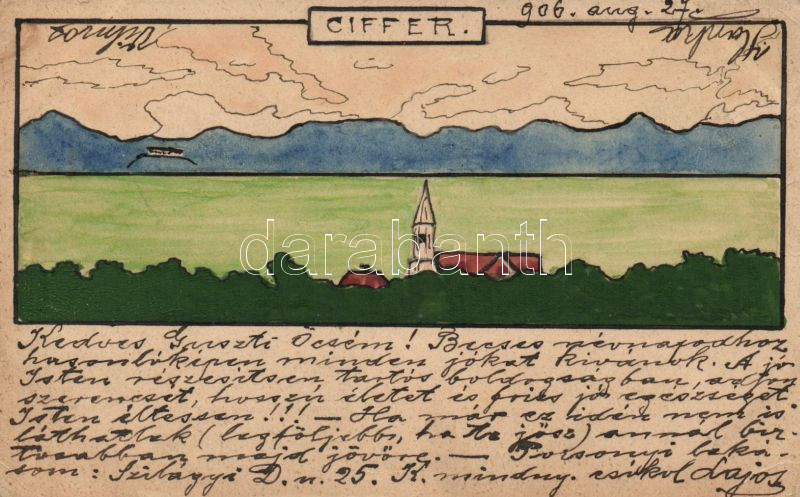 CIFFER.
906. aug. 27.
darabanth
Kedves Guszti Öcsém! Becses névnapodhoz
hasonlóképen minden jókat kivánok. A jó
Isten részesitsen tartós boldogságban, adjon
szerencsét, hosszu életet és friss jó egészséget
Isten éltessen!!! — Ha már ez idén nem is
láthatlak (legföljebb, ha te jösz) annál biz-
tosabban majd jövöre. — Pozsonyi laká-
som: Szilágyi D. u. 25. K. mindny. csókol Lajos